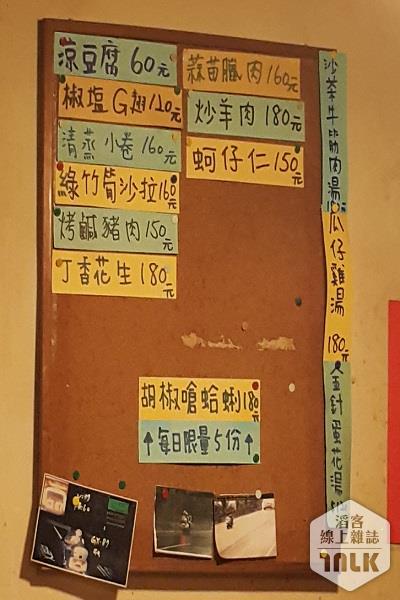 涼豆腐 60元
椒塩G翅120元
清蒸小卷 160元
綠竹筍沙拉160元
烤鹹豬肉 150元
丁香花生 180元
蒜苗臘肉160元
炒羊肉 180元
蚵仔仁 150元
胡椒嗆蛤蜊180元
↑每日限量5份↑
沙茶牛筋肉湯
瓜仔雞湯 180元
金針蛋花湯
滔客
線上雜誌
TALK